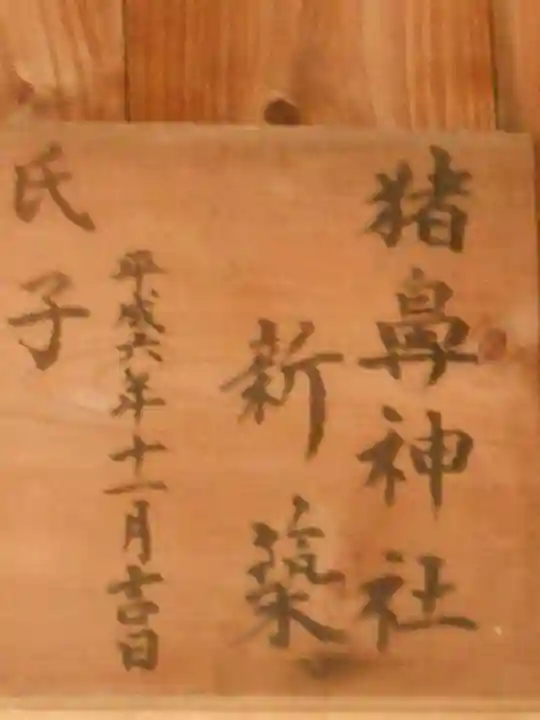 猪鼻神社
新築
平成六年十一月吉日
氏子